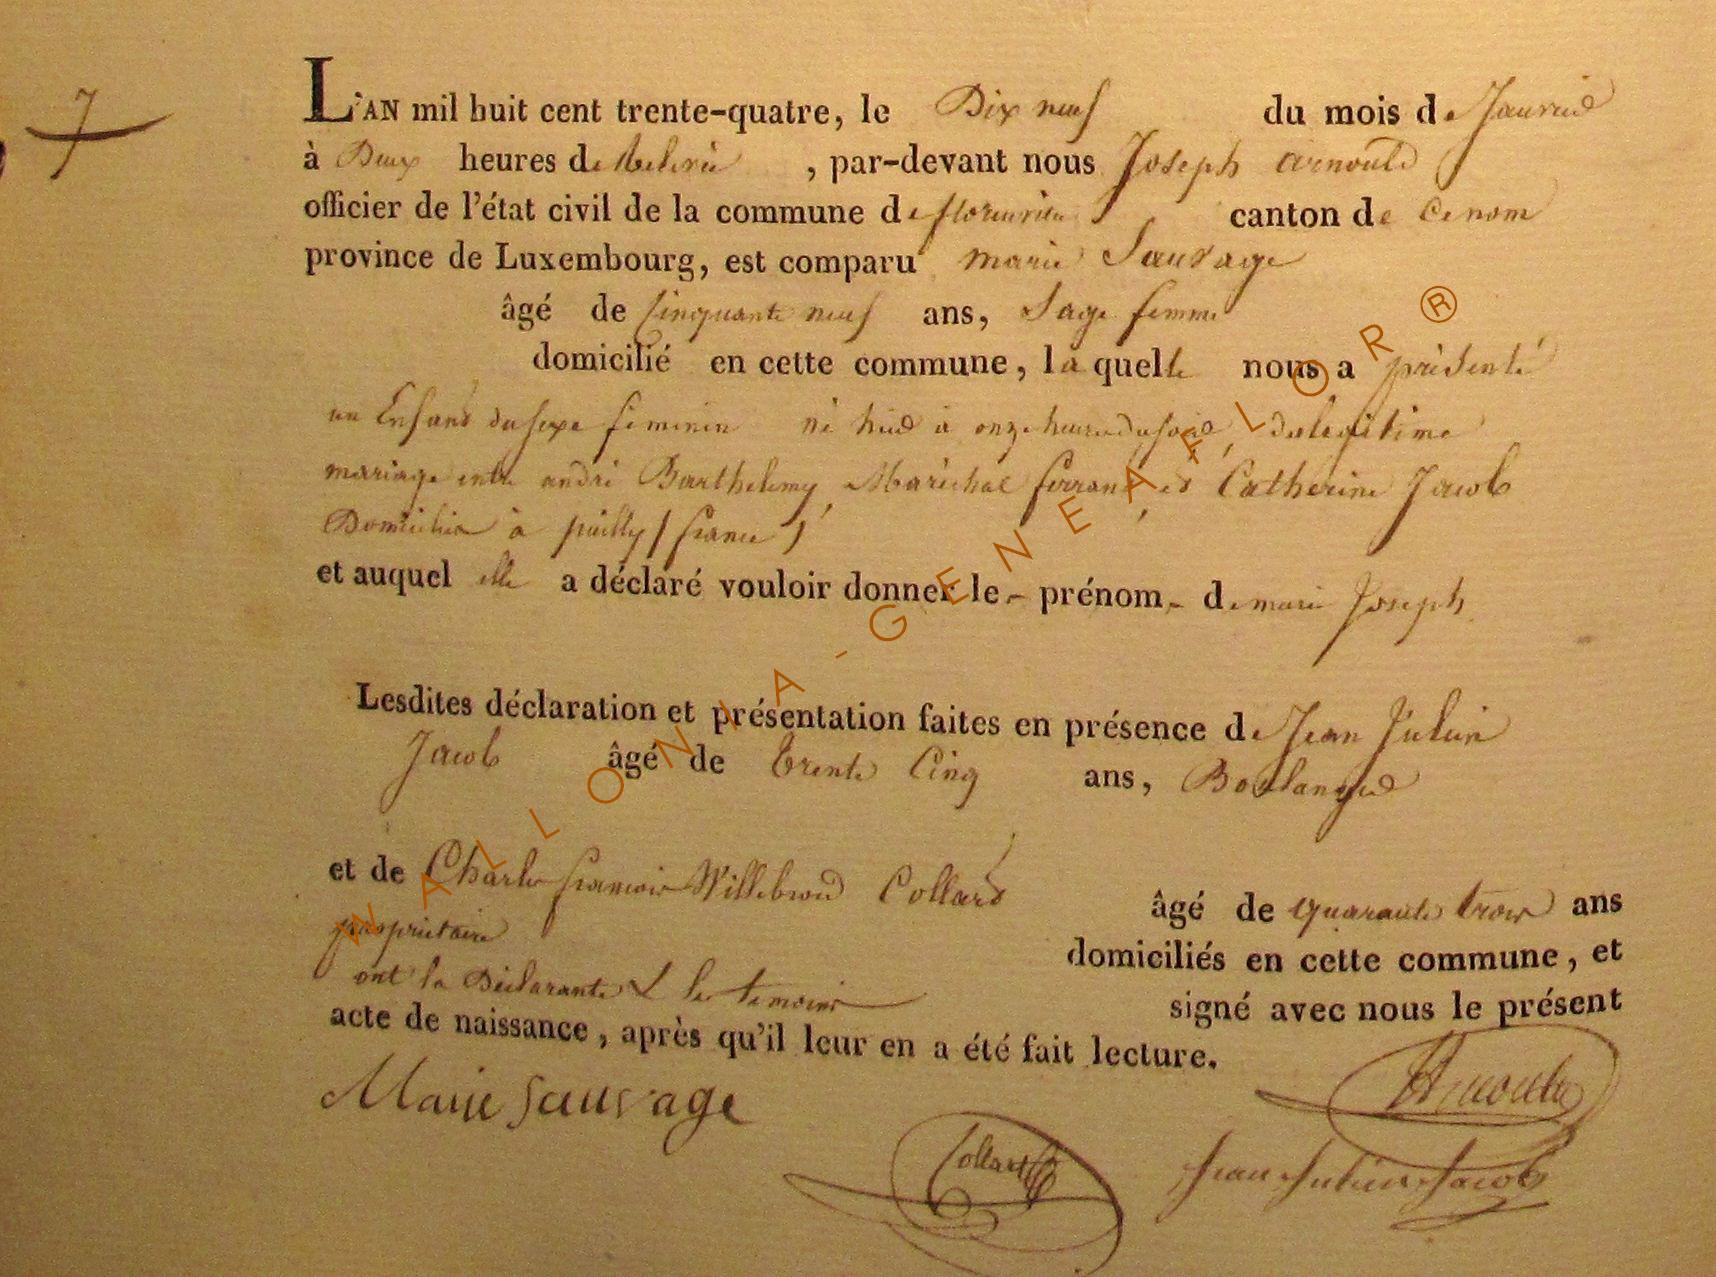 7
L'AN mil huit cent trente-quatre, le Dix neuf du mois de Janvier
à Deux heures de Relevée, par-devant nous Joseph arnould
officier de l'état civil de la commune de florenville canton de Ce nom
province de Luxembourg, est comparu marie Sauvage
âgé de Cinquante neuf ans, Sage femme
domicilié en cette commune, la quelle nous a présenté
un Enfant du sexe feminin né hier à onze heures du soir, du legitime
mariage entre andré Barthelemy, Maréchal ferrant, et Catherine Jacob
Domiciliés à puilly / france /
et auquel elle a déclaré vouloir donner le - prénom - de marie Joseph
Lesdites déclaration et présentation faites en présence de Jean Julien
Jacob âgé de trente Cinq ans, Boulanger
et de Charles francois Willebrord Collard âgé de quarante trois ans
proprietaire domiciliés en cette commune, et
ont la Déclarante & les temoins signé avec nous le présent
acte de naissance, après qu'il leur en a été fait lecture.
Marie sauvage Arnould
Collard Jean Julien Jacob
WALLONIA-GENEAFLOR®